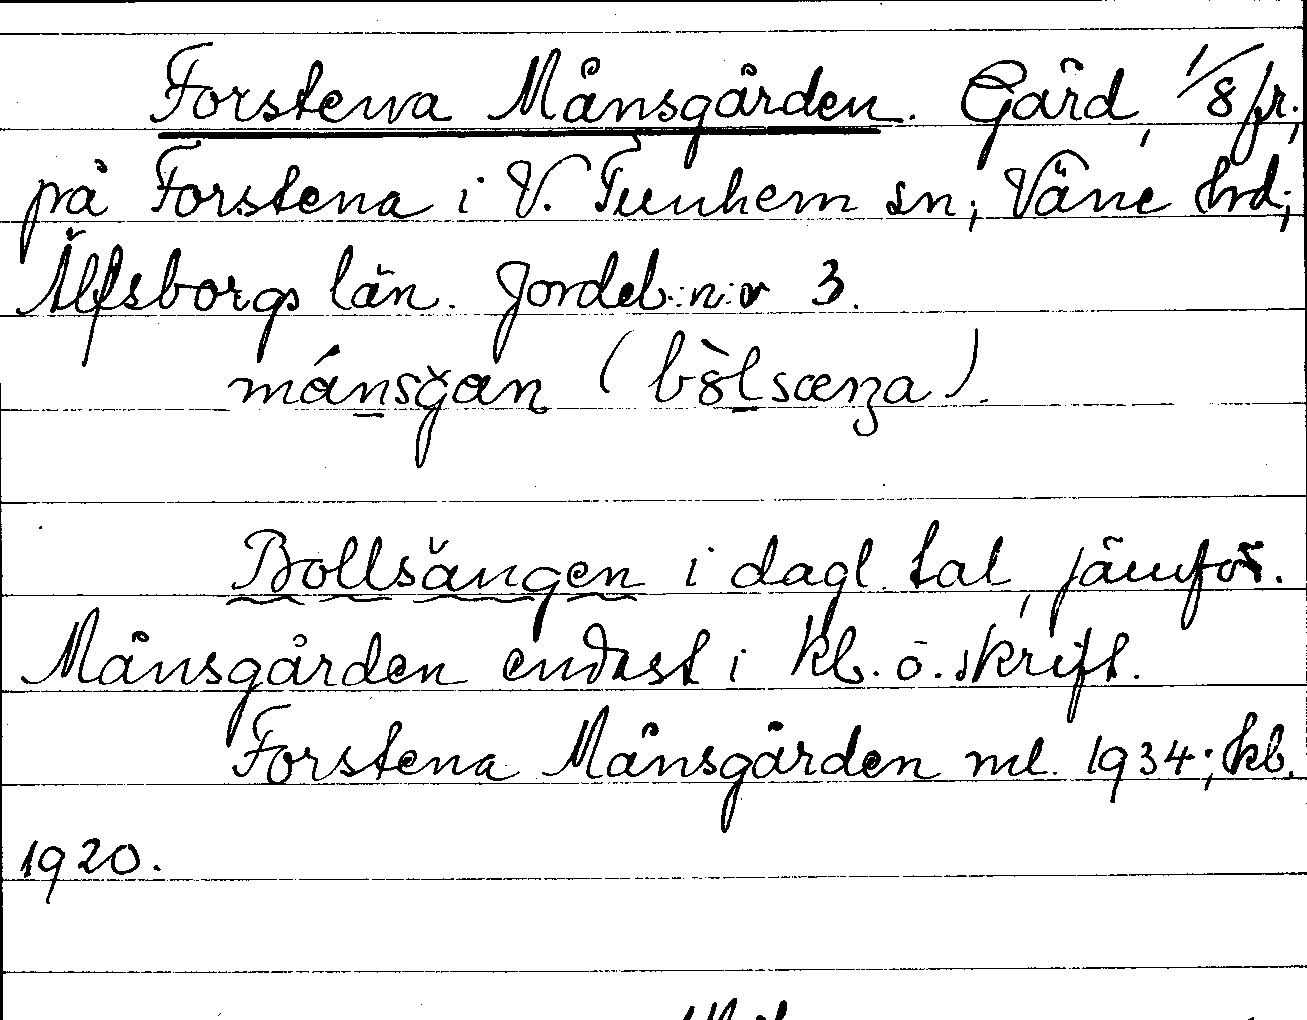 Forstena Månsgården. Gård, 1/8 fr.,
på Forstena i V. Tunhem sn; Väne hrd;
Älfsborgs län. Jordeb.n:r 3.
månsgan (bòlsænza).
Bollsängen i dagl. tal, jämför.
Månsgården endast i kb. o. skrift.
Forstena Månsgården ml. 1934; kb.
1920.